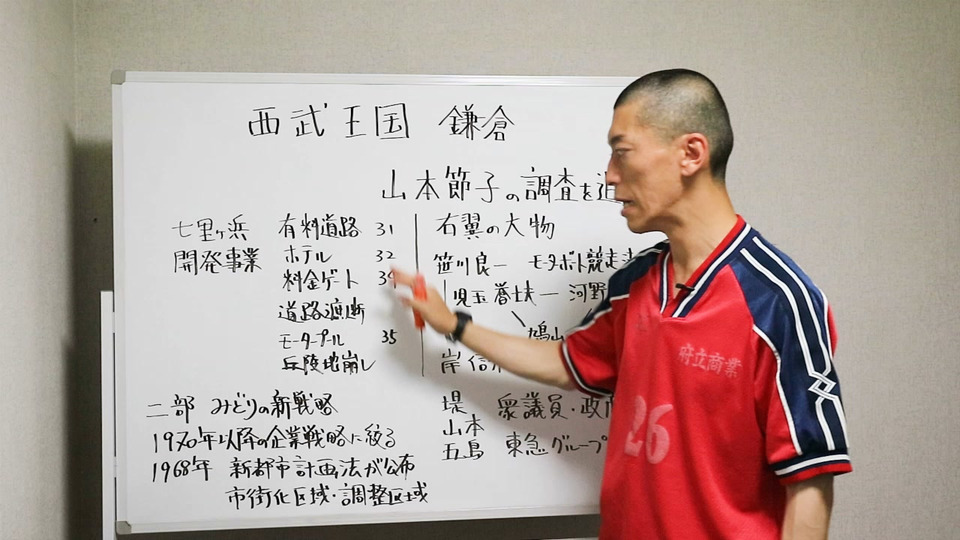 西武王国 鎌倉
山本節子の調査を
七里ヶ浜
開発事業
有料道路 31
ホテル 32
料金ゲート
道路遮断
モータープール 35
丘陵地崩し
右翼の大物
笹川良一 モーターボート競走
児玉誉士夫 — 河野
鳩山
岸信
堤 衆議員・政
山本
五島 東急グループ
二部 みどりの新戦略
1970年以降の企業戦略に絞る
1968年 新都市計画法が公布
市街化区域・調整区域
府立商業
26